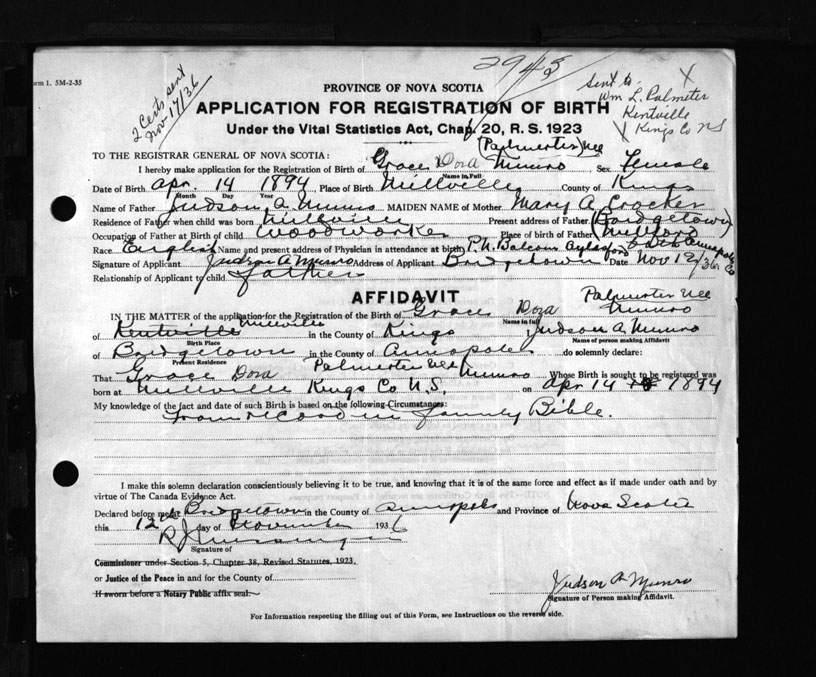 2943
orm 1. 5M-2-35
2 Certs sent
Nov 17/36
Sent to X
Wm L. Palmeter
Kentville
X Kings Co NS
PROVINCE OF NOVA SCOTIA
APPLICATION FOR REGISTRATION OF BIRTH
Under the Vital Statistics Act, Chap. 20, R. S. 1923
TO THE REGISTRAR GENERAL OF NOVA SCOTIA:
(Palmerter) Nee
I hereby make application for the Registration of Birth of Grace Dora Munro Sex Female
Name in Full
Date of Birth Apr. 14 1894 Place of Birth Millville County of Kings
Month Day Year
Name of Father Judson A. Munro MAIDEN NAME of Mother Mary A Crocker
Residence of Father when child was born Millville Present address of Father (Bridgetown)
Occupation of Father at Birth of child Woodworker Place of birth of Father Milford
Race English Name and present address of Physician in attendance at birth P. N. Balcom Aylesford Annapolis Co
Signature of Applicant Judson A Munro Address of Applicant Bridgetown Date Nov 12/36
Relationship of Applicant to child father
AFFIDAVIT
Palmerter Nee
IN THE MATTER of the application for the Registration of the Birth of Grace Dora Munro
Name in full
of Kentville Millville in the County of Kings I, Judson A Munro
Birth Place Name of person making Affidavit
of Bridgetown in the County of Annapolis do solemnly declare:
Present Residence
That Grace Dora Palmerter Nee Munro Whose Birth is sought to be registered was
born at Millville Kings Co N.S. on Apr 14 1894
My knowledge of the fact and date of such Birth is based on the following Circumstances:
From record in family Bible.
I make this solemn declaration conscientiously believing it to be true, and knowing that it is of the same force and effect as if made under oath and by
virtue of The Canada Evidence Act.
Declared before me at Bridgetown in the County of Annapolis and Province of Nova Scotia
this 12th day of November 1936
Signature of
Commissioner under Section 5, Chapter 38, Revised Statutes, 1923,
or Justice of the Peace in and for the County of
If sworn before a Notary Public affix seal.
Judson A Munro
Signature of Person making Affidavit.
For Information respecting the filling out of this Form, see Instructions on the reverse side.